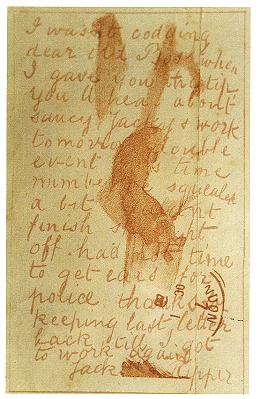 I was not codding
dear old Boss when
I gave you the tip
you'll hear about
saucy Jackys work
tomorrow double
event this time
number one squealed
a bit couldnt
finish straight
off. had not time
to get ears for
police thanks for
keeping last letter
back till I got
to work again.
Jack Ripper
LONDON